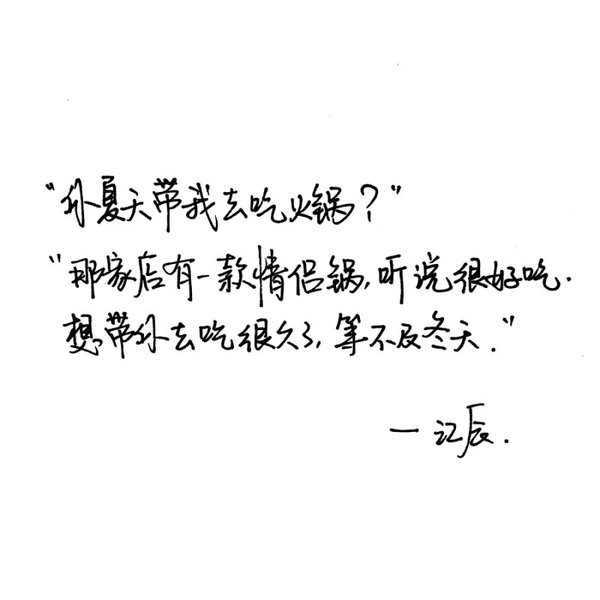 “你夏天带我去吃火锅?”
“那家店有一款情侣锅,听说很好吃.
想带你去吃很久了,等不及冬天.”
—江辰.